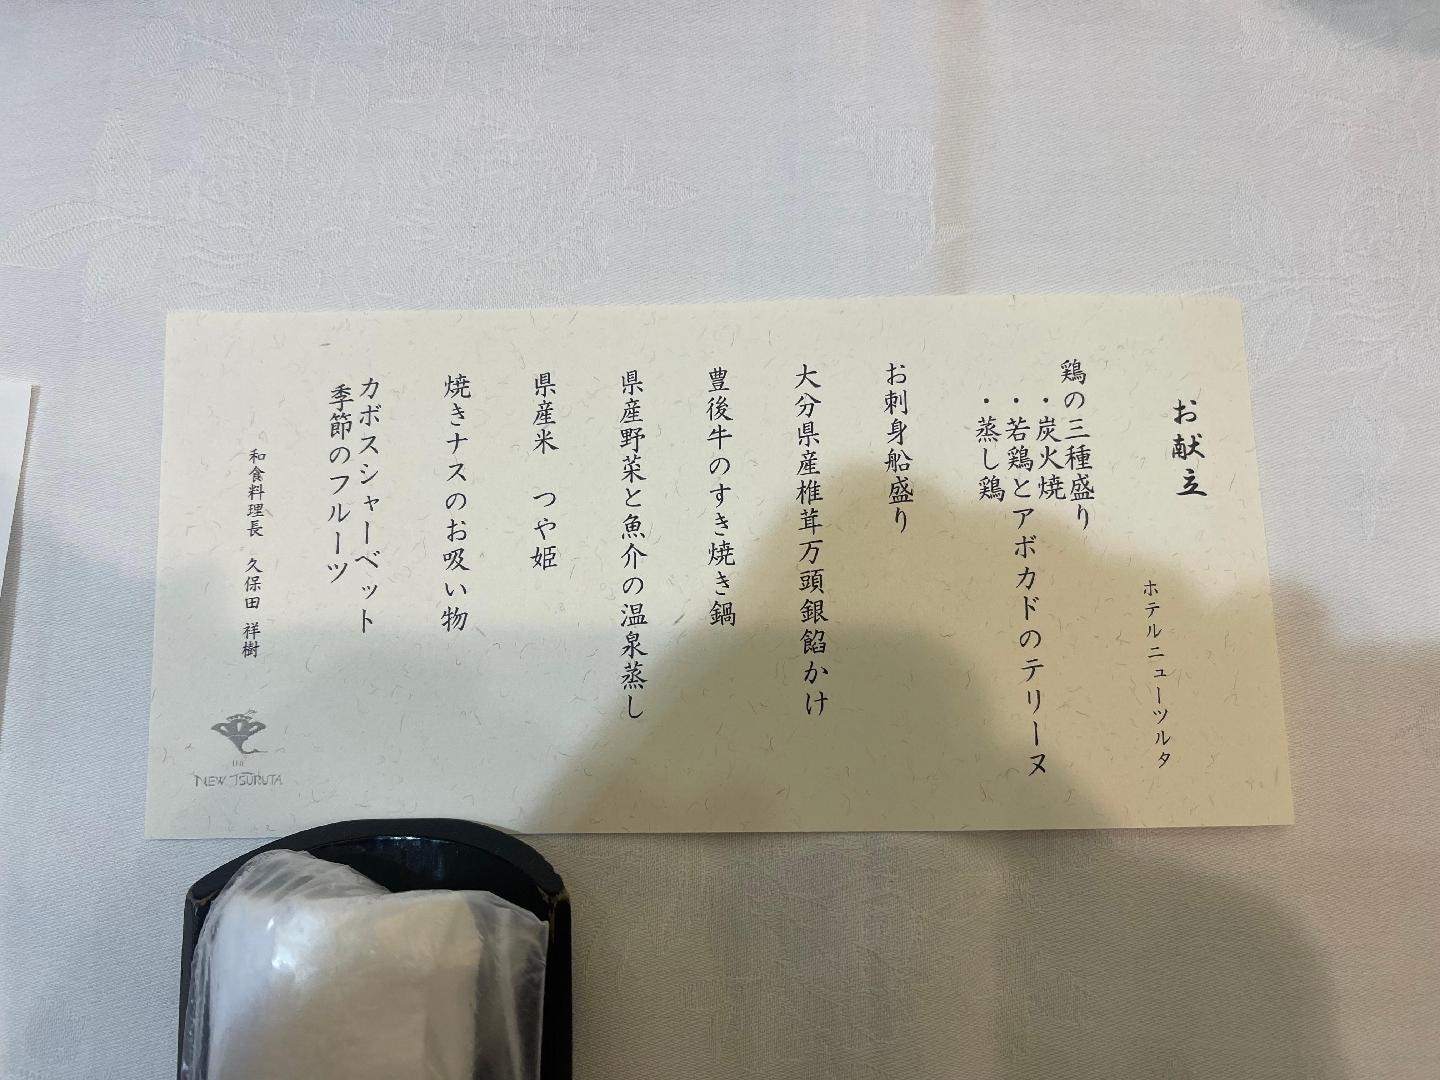 お献立
ホテルニューツルタ
鶏の三種盛り
・炭火焼
・若鶏とアボカドのテリーヌ
・蒸し鶏
お刺身船盛り
大分県産椎茸万頭銀餡かけ
豊後牛のすき焼き鍋
県産野菜と魚介の温泉蒸し
県産米　つや姫
焼きナスのお吸い物
カボスシャーベット
季節のフルーツ
和食料理長　久保田　祥樹
THE
NEW TSURUTA